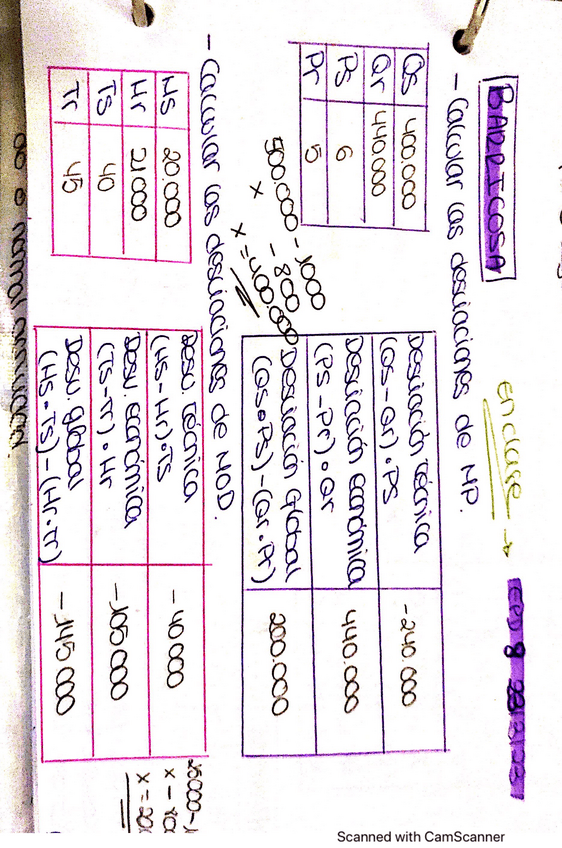 BARRICOSA
en clase →
- Calcular las desviaciones de MP.
Qs 400.000
Qr 440.000
Ps 6
Pr 5
Desviación técnica
(Qs-Qr)•Ps
-240.000
Desviación económica
(Ps-Pr)•Qr
440.000
Desviación Global
(Qs•Ps)-(Qr•Pr)
200.000
500.000 - 1000
x - 800
x = 400.000
- Calcular las desviaciones de MOD.
Hs 20.000
Hr 21000
Ts 40
Tr 45
Desv. técnica
(Hs-Hr)•Ts
-40000
Desv. económica
(Ts-Tr)•Hr
-105000
Desv. global
(Hs•Ts)-(Hr•Tr)
-145000
Scanned with CamScanner